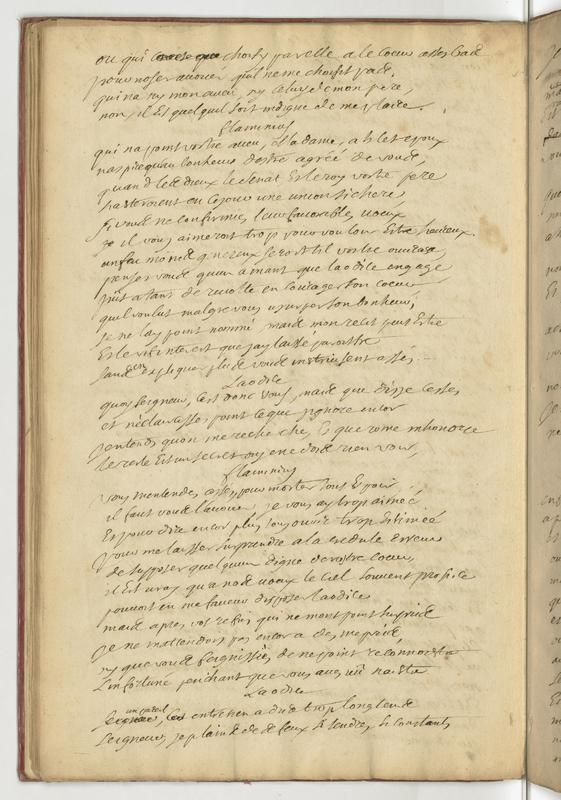 ou qui choisy par elle a le coeur assez bas
pour noser avouer quil ne me choisit pas,
qui na ny mon aveu, ny celuy de mon pere,
non, il est quel quil soit indigne de me plaire.
flaminius
qui na point vostre aveu, Madame, ah les epoux
naspire quau bonheur destre agréé de vous,
quand les dieux le senat et le roy vostre pere
hasteroient en ce jour une union si chere,
si vous ne confirmiez leurs favorables voeux
il vous aimeroit trop pour vouloir estre heureux.
un feu moins genereux seroit il vostre ouvrage
pensez vous quun amant que laodice engage
pust a tant de revolte encourager son coeur
quil voulut malgre vous usurper son bonheur,
je ne lay point nommé mais mon recit peut estre
et le vif interest que jay laissé paroistre
sans en expliquer plus vous instruisent assés.
Laodice
quoy seigneur, cest donc vous, mais que disje cessez
et neclaircissez point ce que jignore encor
jentends quon me recherche, et que rome mhonore
le reste est un secret ou je ne dois rien voir,
flaminius
vous mentendez assez pour moster tout espoir
il faut vous lavouer, je vous ay trop aimée
et pour dire encor plus toujours trop estimée
pour me laisser surprendre a la credule erreur
de supposer quelquun digne de vostre coeur,
il est vray qua nos voeux le ciel souvent propice
pouvoit en ma faveur disposer laodice
mais apres vos refus qui ne mont point surpris
je ne mattendois pas encor a des mepris,
ny que vous feignissiez de ne point reconnoistre
linfortuné penchant que vous avez vu naistre
Laodice
un pareil entretien a duré trop longtemps
seigneur, je plains des feux si tendres si constants,